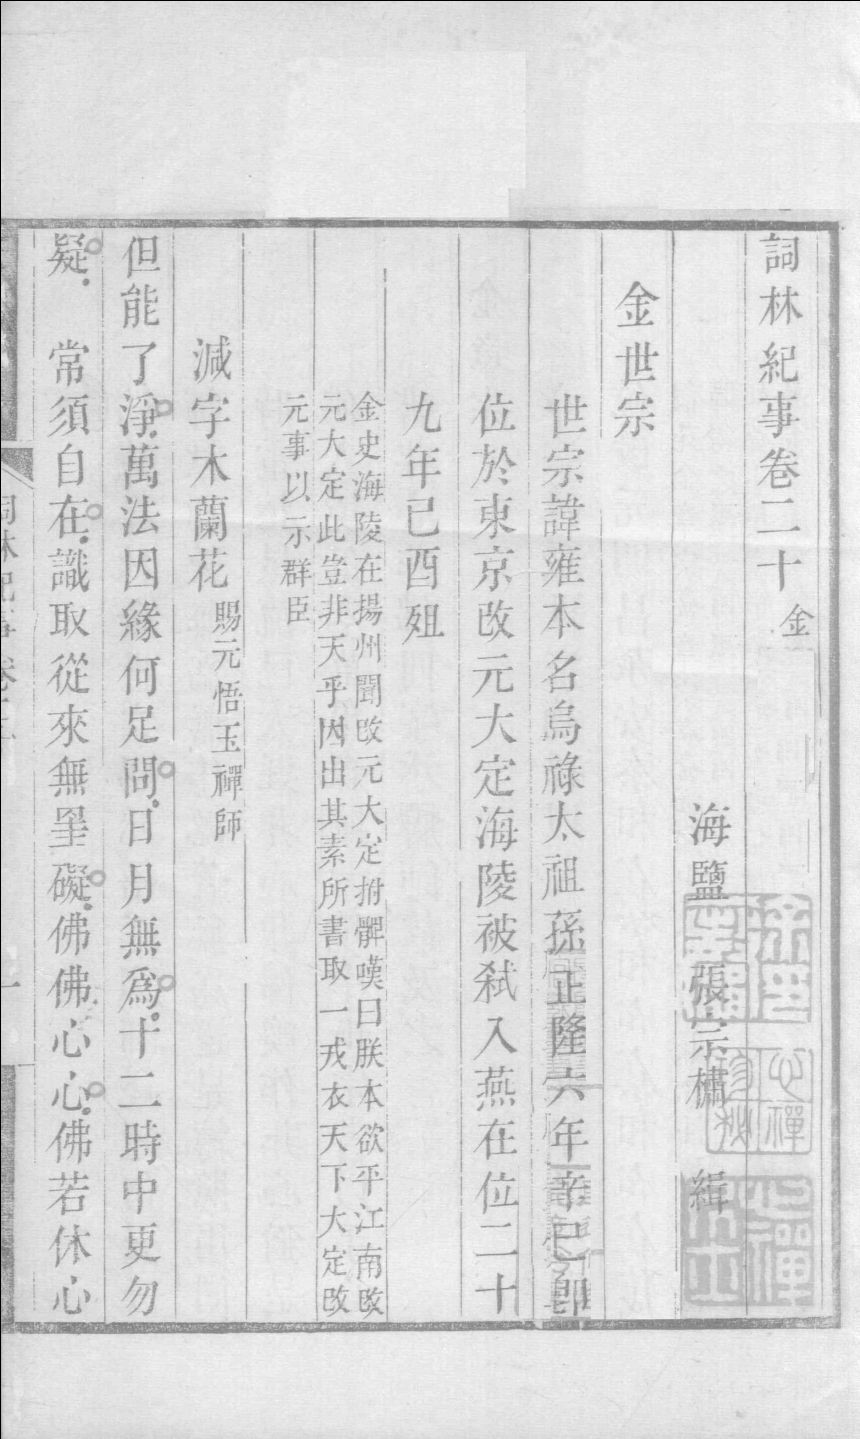 詞林紀事卷二十 金
海鹽 張宗橚 緝
金世宗
世宗諱雍本名烏祿太祖孫正隆六年辛巳即
位於東京改元大定海陵被弒入燕在位二十
九年己酉殂
金史海陵在揚州聞改元大定拊髀嘆曰朕本欲平江南改
元大定此豈非天乎因出其素所書取一戎衣天下大定改
元事以示群臣
減字木蘭花 賜元悟玉禪師
但能了淨萬法因緣何足問日月無為十二時中更勿
疑 常須自在識取從來無罣礙佛佛心心佛若休心
詞林紀事 卷二十
一
心禪